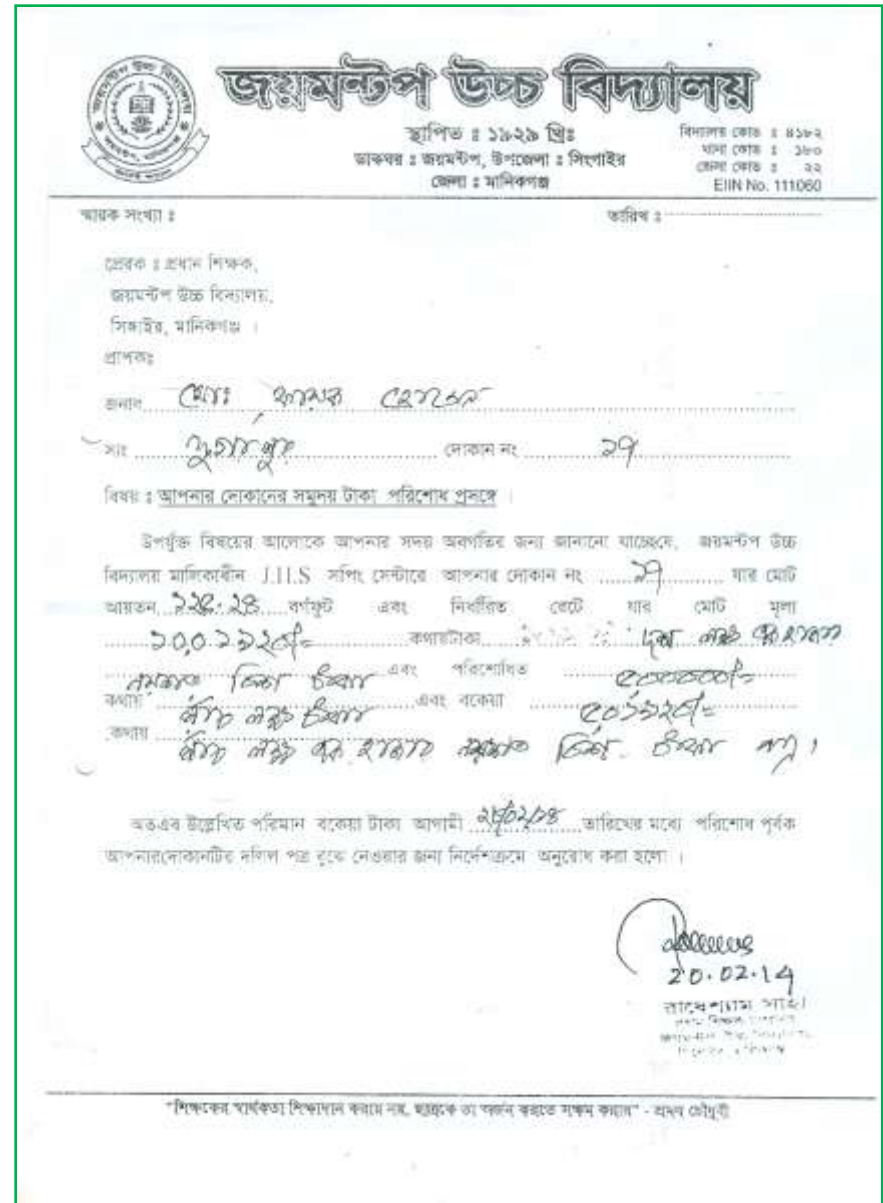 জয়মন্টপ উচ্চ বিদ্যালয়
স্থাপিত ঃ ১৯২৯ খ্রিঃ
ডাকঘর ঃ জয়মন্টপ, উপজেলা ঃ সিংগাইর
জেলা ঃ মানিকগঞ্জ
বিদ্যালয় কোড ঃ ৪১৮২
থানা কোড ঃ ১৮০
জেলা কোড ঃ ২২
EIIN No. 111060
স্মারক সংখ্যা ঃ তারিখ ঃ
প্রেরক ঃ প্রধান শিক্ষক,
জয়মন্টপ উচ্চ বিদ্যালয়,
সিঙ্গাইর, মানিকগঞ্জ ।
প্রাপকঃ
জনাব মোঃ হোসেন
সাং দোকান নং ১৭
বিষয় ঃ আপনার দোকানের সমুদয় টাকা পরিশোধ প্রসঙ্গে ।
উপর্যুক্ত বিষয়ের আলোকে আপনার সদয় অবগতির জন্য জানানো যাচ্ছেযে, জয়মন্টপ উচ্চ
বিদ্যালয় মালিকাধীন J.H.S সপিং সেন্টারে আপনার দোকান নং ১৭ যার মোট
আয়তন বর্গফুট এবং নির্ধারিত রেটে যার মোট মূল্য
কথায়টাকা দশ লক্ষ এক হাজার
নয়শত বিশ টাকা এবং পরিশোধিত ৫০০০০০/=
কথায় পাঁচ লক্ষ টাকা এবং বকেয়া ৫০১৯২০/=
কথায় পাঁচ লক্ষ এক হাজার নয়শত বিশ টাকা মাত্র।
অতএব উল্লেখিত পরিমান বকেয়া টাকা আগামী তারিখের মধ্যে পরিশোধ পূর্বক
আপনারদোকানটির দলিল পত্র বুঝে নেওয়ার জন্য নির্দেশক্রমে অনুরোধ করা হলো ।
20.02.14
রাধেশ্যাম সাহা
"শিক্ষকের স্বার্থকতা শিক্ষাদান করায় নয়, ছাত্রকে তা অর্জন করতে সক্ষম করায়" - প্রমথ চৌধুরী